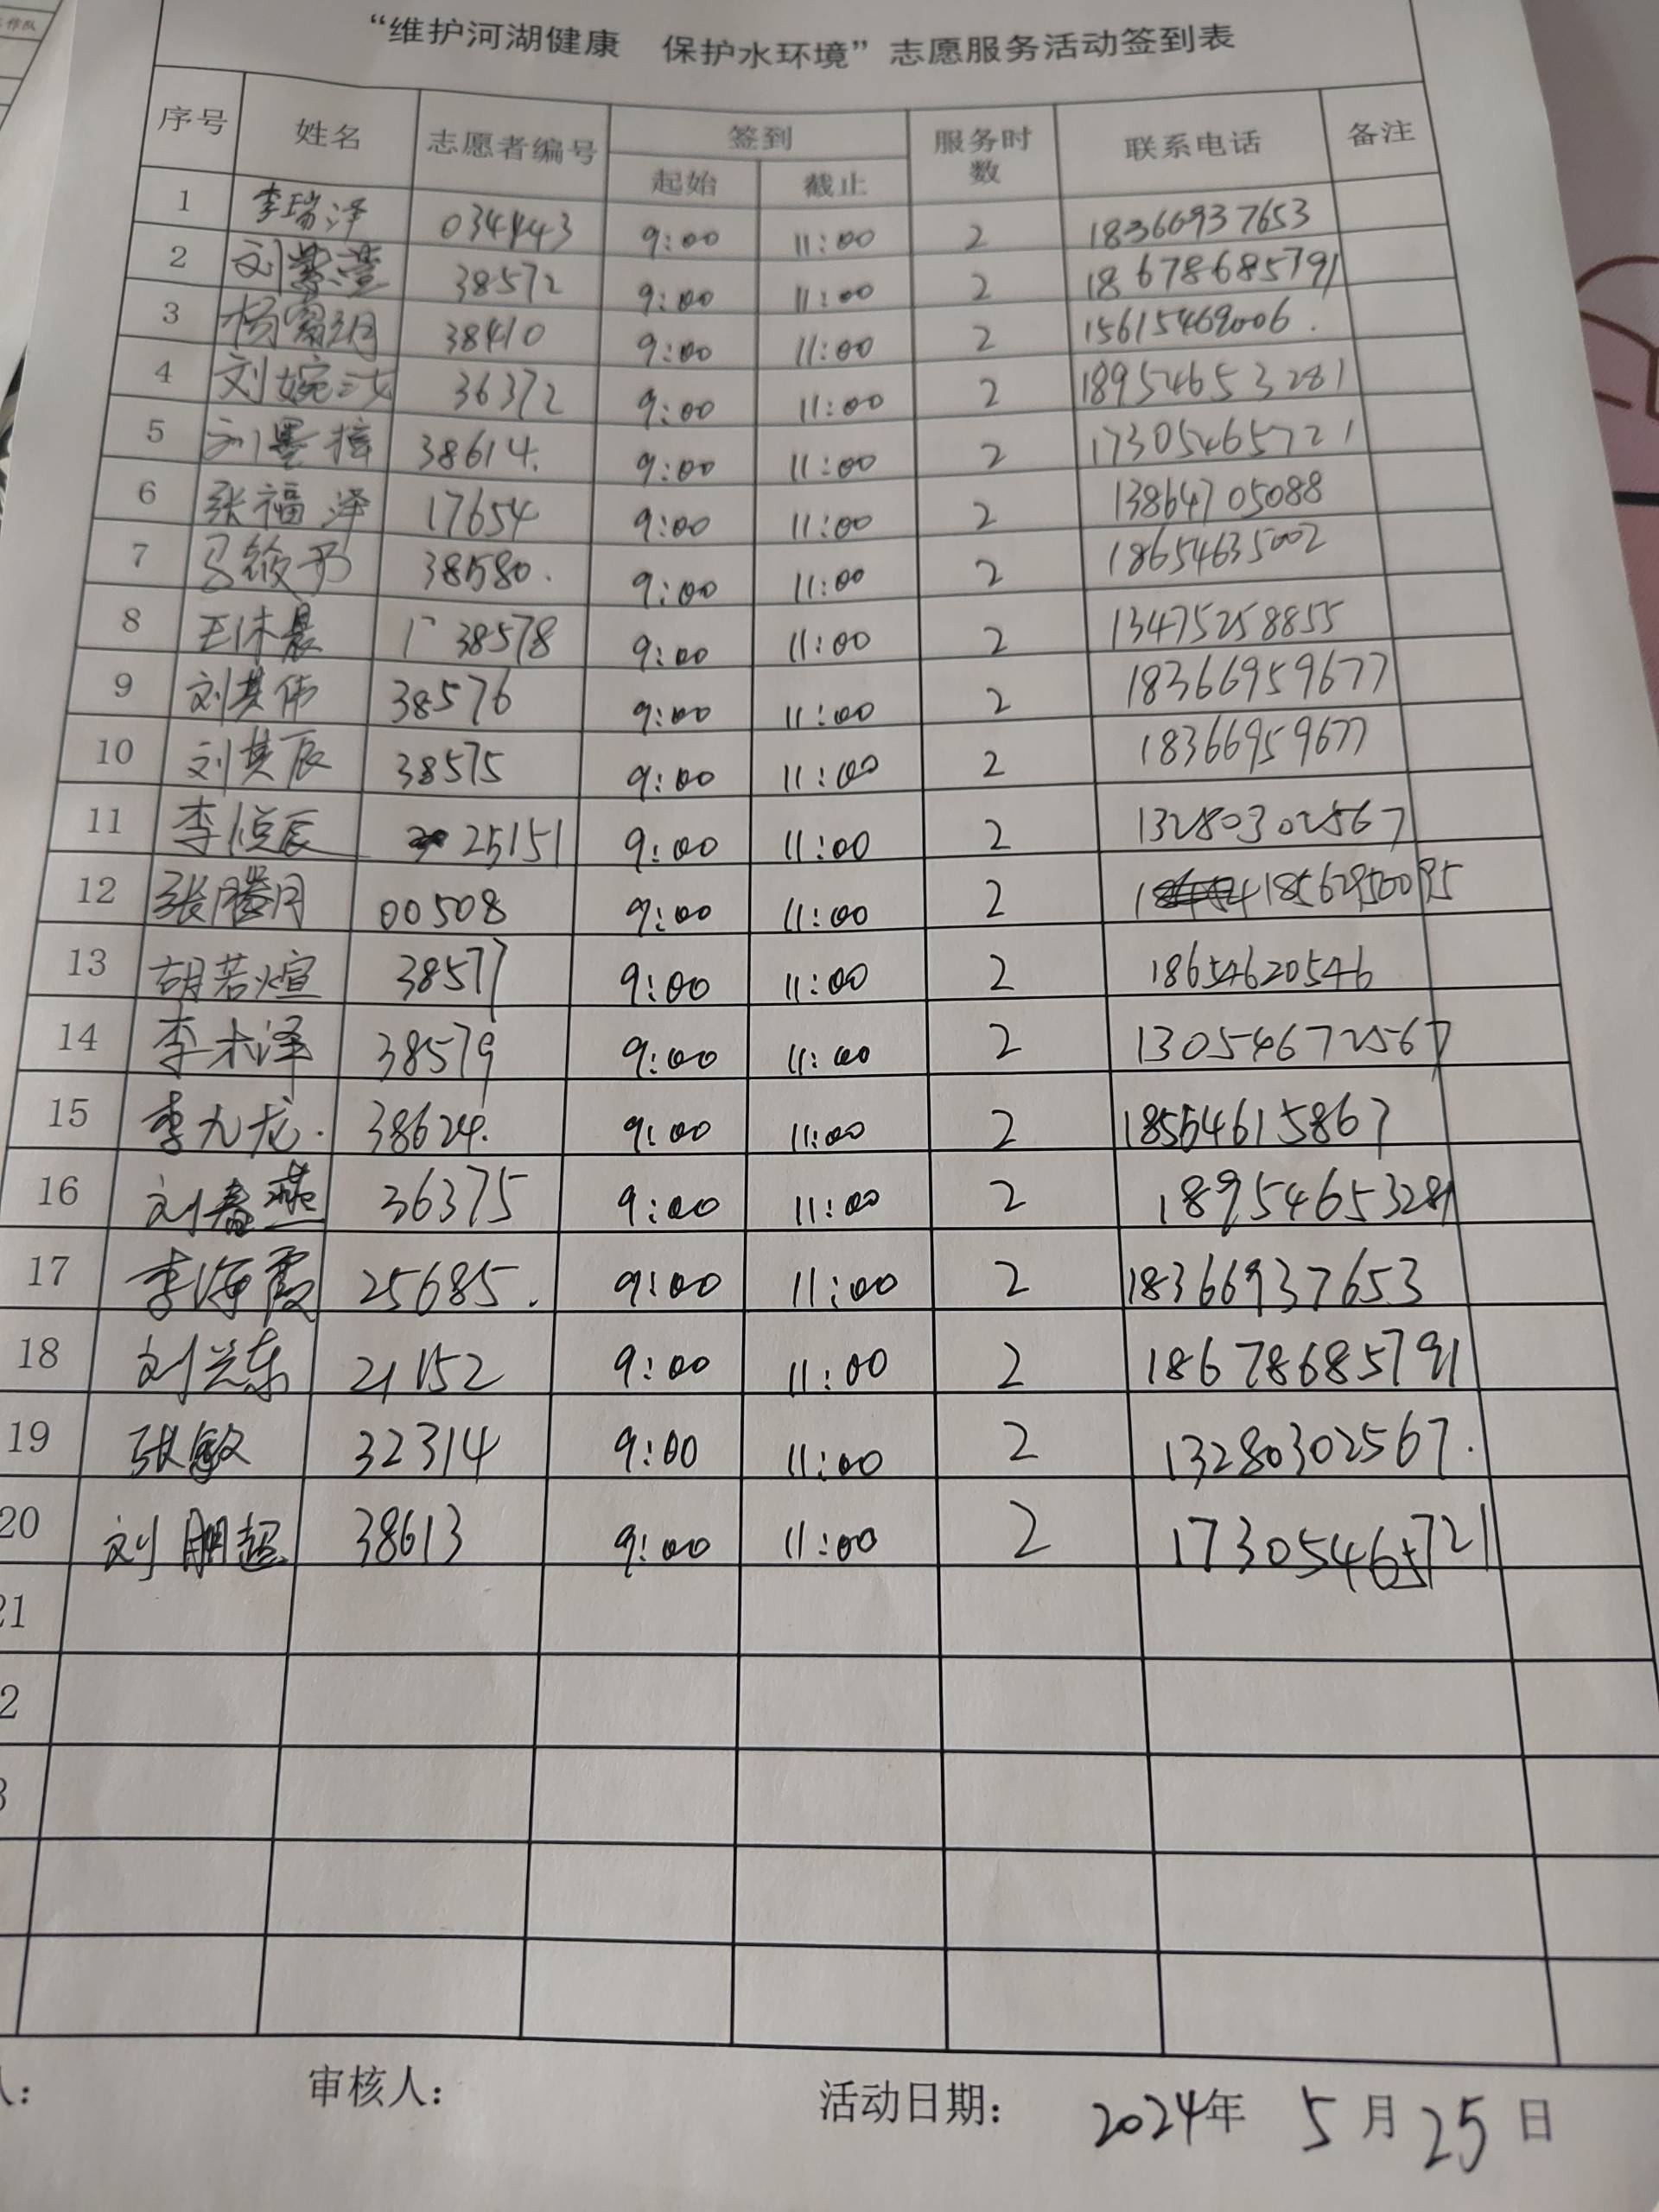 “维护河湖健康 保护水环境”志愿服务活动签到表
序号 姓名 志愿者编号 签到 服务时数 联系电话 备注
起始 截止
1 李瑞泽 034443 9:00 11:00 2 18366937653
2 刘 38572 9:00 11:00 2 18678685791
3 杨 38410 9:00 11:00 2 15615469006.
4 刘婉 36372 9:00 11:00 2 18954653281
5 刘墨 38614. 9:00 11:00 2 17305465721
6 张福泽 17654 9:00 11:00 2 13864705088
7 38580. 9:00 11:00 2 18654635002
8 王沐晨 38578 9:00 11:00 2 13475258855
9 刘其伟 38576 9:00 11:00 2 18366959677
10 刘其辰 38575 9:00 11:00 2 18366959677
11 李恒辰 25151 9:00 11:00 2 13280302567
12 张腾月 00508 9:00 11:00 2 18562950095
13 胡若煊 38577 9:00 11:00 2 18654620546
14 李木泽 38579 9:00 11:00 2 13054672567
15 李九龙. 38624. 9:00 11:00 2 18554615867
16 刘春燕 36375 9:00 11:00 2 18954653281
17 李海霞 25685. 9:00 11:00 2 18366937653
18 刘兰东 21152 9:00 11:00 2 18678685791
19 张敏 32314 9:00 11:00 2 13280302567.
20 刘鹏超 38613 9:00 11:00 2 17305465721
审核人: 活动日期: 2024年 5月25日